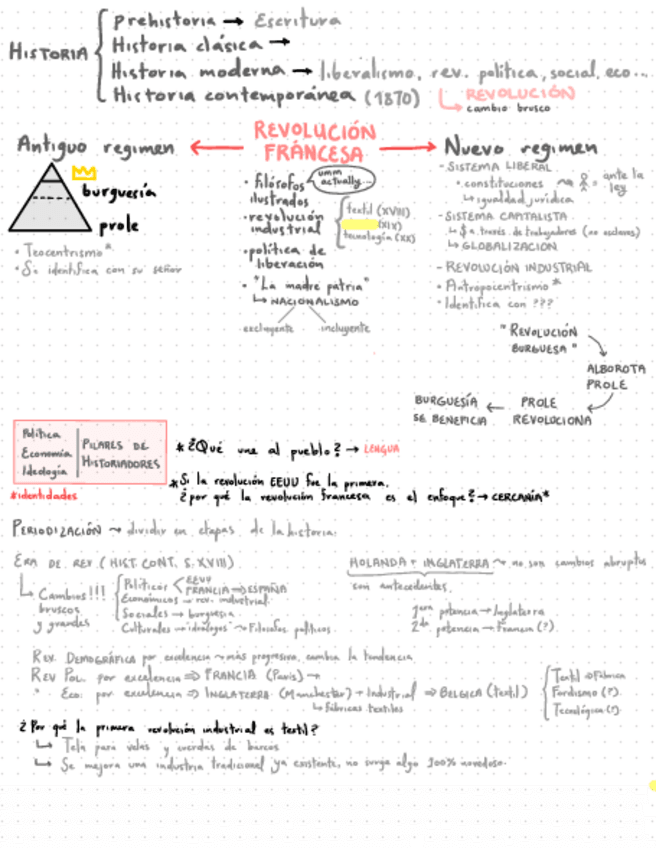 HISTORIA
Prehistoria → Escritura
Historia clásica →
Historia moderna → liberalismo, rev. política, social, eco...
Historia contemporánea (1870)
REVOLUCIÓN
↳ cambio brusco
Antiguo regimen ← REVOLUCIÓN FRANCESA → Nuevo regimen
burguesía
prole
• Teocentrismo*
• Se identifica con su señor
• filósofos ilustrados
umm actually...
• revolución industrial
textil (XVIII)
(XIX)
tecnología (XX)
• política de liberación
• "La madre patria"
↳ NACIONALISMO
excluyente incluyente
- SISTEMA LIBERAL
• constituciones = ante la ley
↳ igualdad jurídica
- SISTEMA CAPITALISTA
↳ $ a través de trabajadores (no esclavos)
↳ GLOBALIZACIÓN
- REVOLUCIÓN INDUSTRIAL
- Antropocentrismo*
- Identifica con ???
"REVOLUCIÓN BURGUESA"
ALBOROTA PROLE
PROLE REVOLUCIONA
BURGUESÍA SE BENEFICIA
Política
Economía
Ideología
PILARES DE HISTORIADORES
*identidades
* ¿Qué une al pueblo? → LENGUA
* Si la revolución EEUU fue la primera,
¿por qué la revolución francesa es el enfoque? → CERCANÍA*
PERIODIZACIÓN ~ dividir en etapas de la historia.
ERA DE REV. (HIST. CONT. S. XVIII)
↳ Cambios!!!
bruscos
y grandes
Políticos < EEUU
FRANCIA → ESPAÑA
Económicos → rev. industrial
Sociales → burguesía
Culturales → "ideólogos" ~ Filósofos políticos.
HOLANDA + INGLATERRA ~ no son cambios abruptos
son antecedentes.
1era potencia → Inglaterra
2da potencia → Francia (?).
REV. DEMOGRÁFICA por excelencia → más progresivo, cambia la tendencia
REV POL. por excelencia ⇒ FRANCIA (París) →
" Eco: por excelencia ⇒ INGLATERRA (Manchester) + Industrial ⇒ BELGICA (textil)
↳ fábricas textiles
Textil → Fábrica
Fordismo (?).
Tecnológica (?).
¿Por qué la primera revolución industrial es textil?
↳ Tela para velas y cuerdas de barcos
↳ Se mejora una industria tradicional ya existente, no surge algo 100% novedoso.